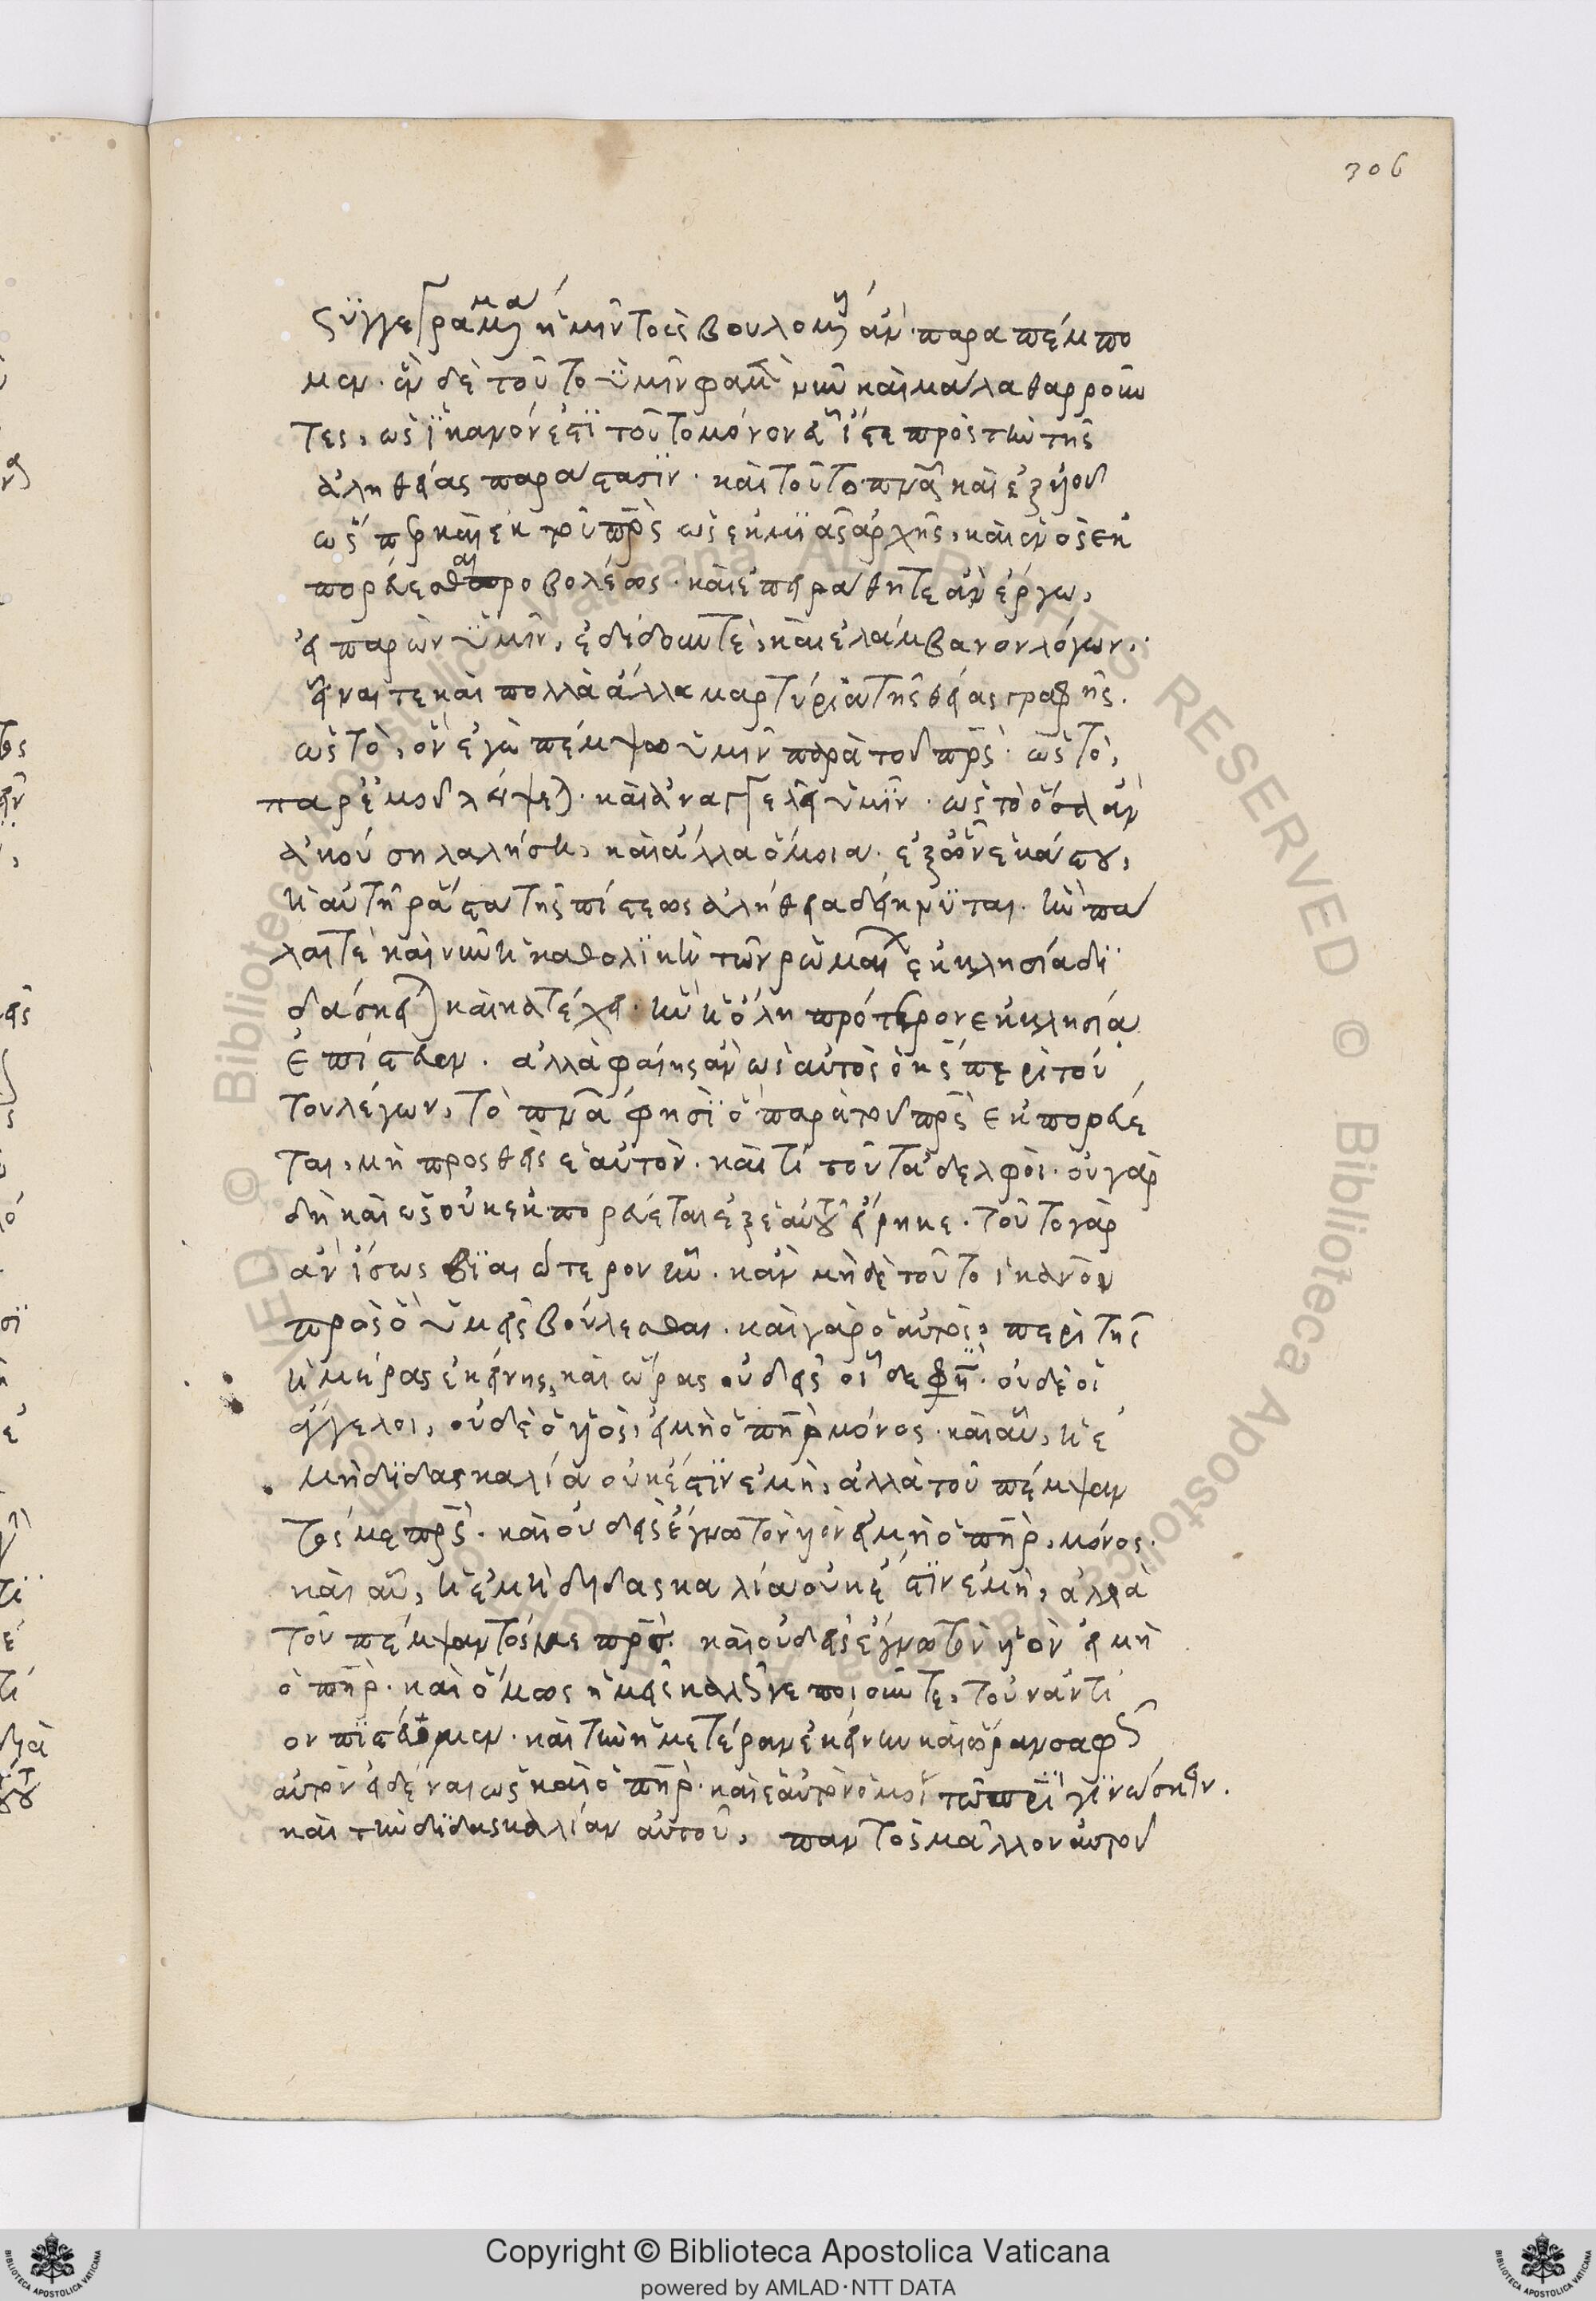 306
συγγεγραμμένα ἡμῖν τοῖς βουλομένοις ἂν παραπέμπο
μεν. ἓν δὲ τοῦτο ὑμῖν φαμὲν νῦν καὶ μάλα θαρροῦν
τες, ὡς ἱκανόν ἐστι τοῦτο μόνον εἴ γε πρὸς τὴν τῆς
ἀληθείας παράστασιν. καὶ τοῦτο πνεῦμα καὶ ἐξ υἱοῦ
ὥσπερ καὶ ἐκ τοῦ πρς ὡς ἐκ μιᾶς ἀρχῆς, καὶ ἑνὸς ἐκ
πορεύεσθαι προβολέως. καὶ ἐπειράθητε ἂν ἔργω,
εἰ παρὼν ὑμῖν, ἐδίδουν τὲ, καὶ ἐλάμβανον λόγων.
εἶναι τε καὶ πολλὰ ἄλλα μαρτύρια τῆς θείας γραφῆς.
ὡς τὸ, ὃν ἐγὼ πέμψω ὑμῖν παρὰ τοῦ πρς. ὡς τὸ,
παρ' ἐμοῦ λήψεται. καὶ ἀναγγελεῖ ὑμῖν. ὡς τὸ ὅσα ἂν
ἀκούση λαλήσει, καὶ ἄλλα ὅμοια. ἐξ ὧν ἑκάστου,
ἡ αὐτὴ ῥᾶστα τῆς πίστεως ἀλήθεια δείκνυται. ἣν πά
λαι τὲ καὶ νῦν ἡ καθολικὴ τῶν ῥωμαίων ἐκκλησία δι
δάσκει καὶ κατέχει. ἣν ἡ ὅλη πρότερον ἐκκλησία
ἐπίστευεν. ἀλλὰ φαίης ἂν ὡς αὐτὸς ὁ κς περὶ τού
του λέγων, τὸ πνα φησὶ ὃ παρὰ τοῦ πρς ἐκπορεύε
ται, μὴ προσθεὶς ἑαυτόν. καὶ τί τοῦτ' ἀδελφοί. οὐ γὰρ
δὴ καὶ ὡς οὐκ ἐκπορεύεται ἐξ ἑαυτοῦ εἴρηκε. τοῦτο γὰρ
ἂν ἴσως βιαιότερον ἦν. κἂν μηδὲ τοῦτο ἱκανὸν
πρὸς ὃ ὑμεῖς βούλεσθαι. καὶ γὰρ ὁ αὐτὸς, περὶ τῆς
ἡμέρας ἐκείνης, καὶ ὥρας οὐδεὶς οἶδε φησὶ. οὐδὲ οἱ
ἄγγελοι, οὐδὲ ὁ υἱὸς, εἰ μὴ ὁ πηρ μόνος. καὶ αὖ, ἡ ἐ
μὴ διδασκαλία οὐκ ἔστιν ἐμὴ, ἀλλὰ τοῦ πέμψαν
τός με πρς. καὶ οὐδεὶς ἔγνω τὸν υἱὸν εἰ μὴ ὁ πηρ, μόνος.
καὶ αὖ, ἡ ἐμὴ διδασκαλία οὐκ ἔστιν ἐμὴ, ἀλλὰ
τοῦ πέμψαντός με πρς. καὶ οὐδεὶς ἔγνω τὸν υἱὸν εἰ μὴ
ὁ πηρ. καὶ ὅμως ἡμεῖς καλῶς γε ποιοῦντες, τοὐναντί
ον πιστεύομεν. καὶ τὴν ἡμετέραν ἐκείνην καὶ ὥραν σαφῶς
αὐτὸν εἰδέναι ὡς καὶ ὁ πηρ. καὶ ἑαυτὸν ὁμοῦ τῶ πρι γινώσκειν.
καὶ τὴν διδασκαλίαν αὐτοῦ, παντὸς μᾶλλον αὐτοῦ
Copyright © Biblioteca Apostolica Vaticana
powered by AMLAD·NTT DATA